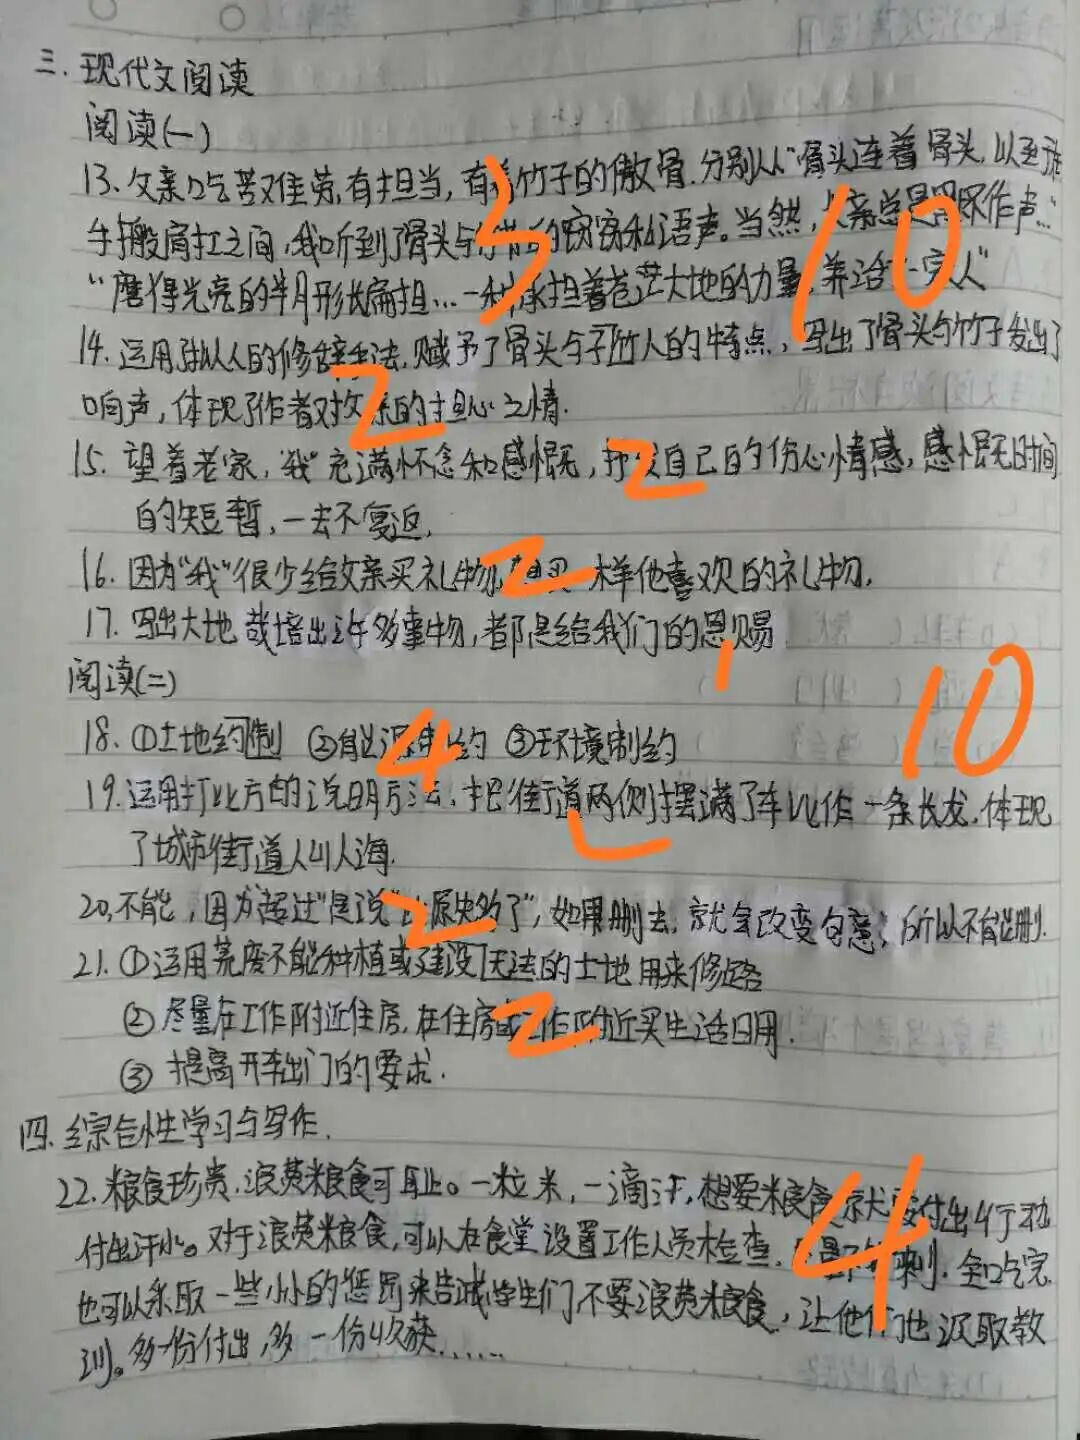 三.现代文阅读
阅读(一)
13.父亲吃苦难劳,有担当,有着竹子的傲骨.分别从"骨头连着骨头,以至
手搬肩扛之间,我听到了骨头与的窃窃私语声。当然,父亲总是不作声…"
"磨得光亮的半月形长扁担…一种承担着苍茫大地的力量,养活了一家人"
14.运用拟人的修辞手法,赋予了骨头与子竹人的特点,写出了骨头与竹子发出了
响声,体现了作者对父亲的担心之情.
15.望着老家,"我"充满怀念和感慨,抒发自己的伤心情感,感慨时间
的短暂,一去不复返.
16.因为"我"很少给父亲买礼物,想买一样他喜欢的礼物.
17.写出大地栽培出许多事物,都是给我们的恩赐.
3
10
2
2
2
1
阅读(二)
18.①土地约制 ②能源制约 ③环境制约
19.运用打比方的说明方法,把街道两侧摆满了车比作一条长龙.体现
了城市街道人山人海.
20,不能,因为"超过"是说"比原先多了",如果删去,就会改变句意,所以不能删.
21.①运用荒废不能种植或建设无法的土地用来修路
②尽量在工作附近住房.在住房或工作附近买生活日用.
③提高开车出门的要求.
4
10
2
2
四.综合性学习与写作.
22.粮食珍贵.浪费粮食可耻。一粒米,一滴汗,想要粮食就要付出行动
付出汗水。对于浪费粮食,可以在食堂设置工作人员检查,剩.全吃完
也可以采取一些小小的惩罚来告诫学生们不要浪费粮食,让他们也汲取教
训。多一份付出,多一份收获……
4